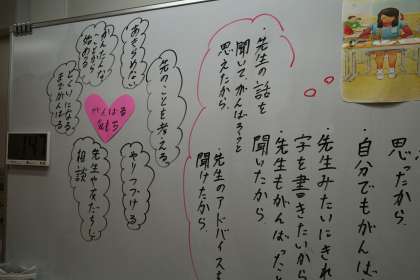 思ったから。
・自分でもがんば
・先生みたいにきれ
字を書きたいから
・先生もがんばった
聞いたから。
・先生のアドバイスを
聞けたから。
・先生の話を
聞いて、がんばろうと
思えたから。
先のことを考える
あきらめない
かんたんな
ことから
始める
とくいになる
までがんばる
がんばる
やりつづける
先生や友だちに
相談